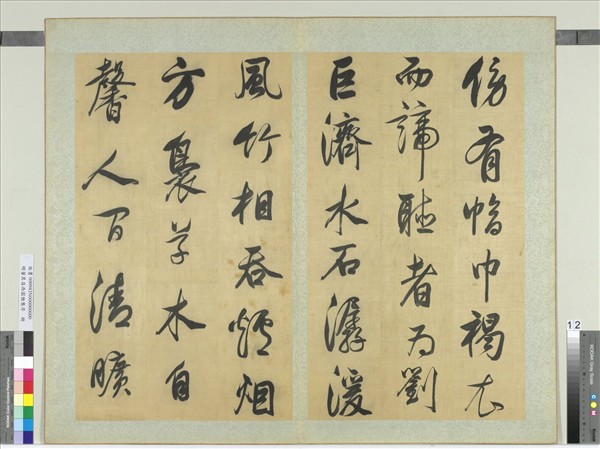 傍有幅巾褐衣
而諦聽者為劉
巨濟水石潺湲
風竹相吞爐烟
方裊草木自
馨人間清曠
12